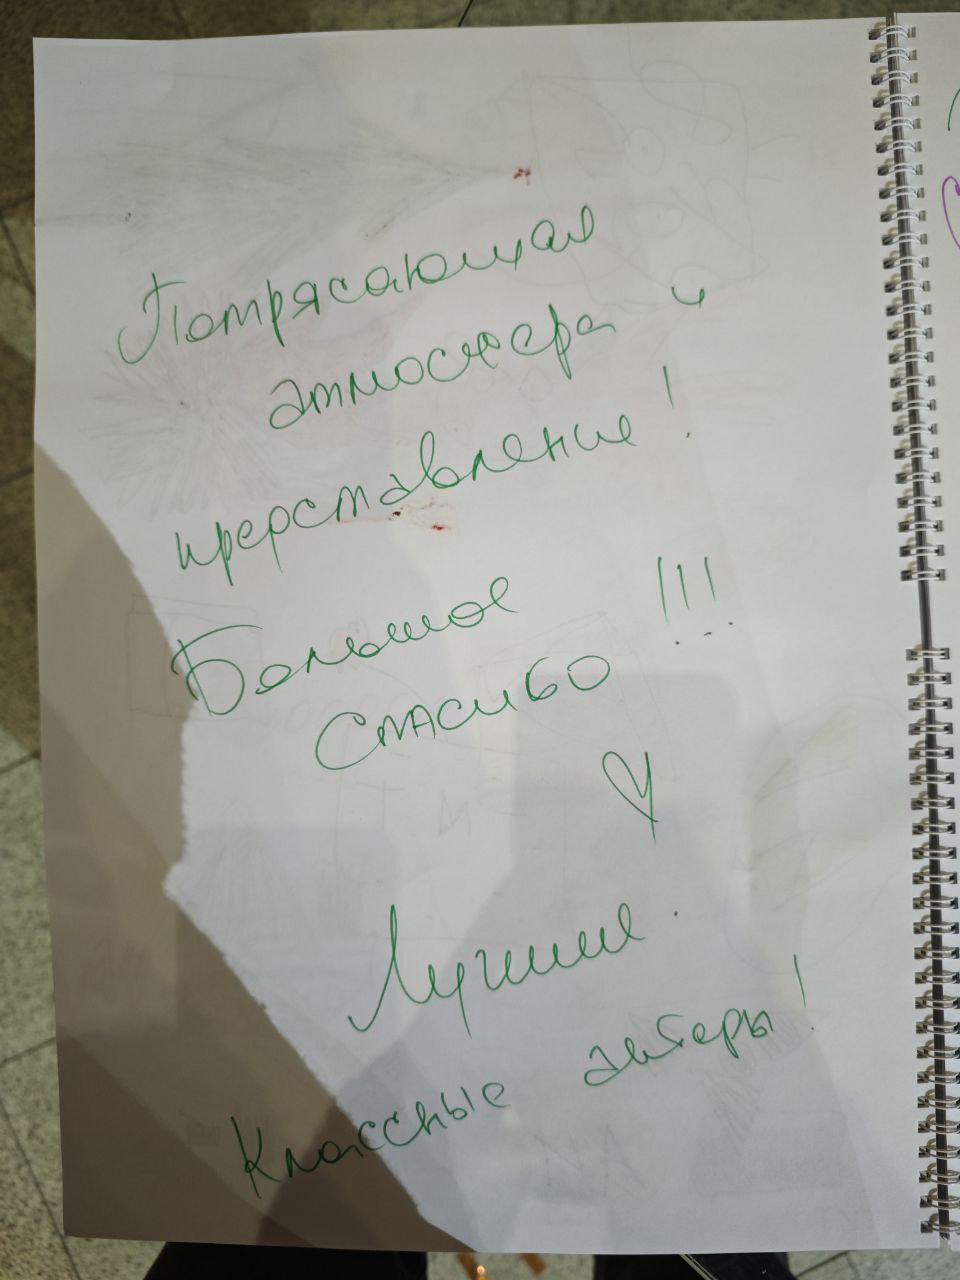 Потрясающая
атмосфера и
представление!
Большое !!!
спасибо
Лучшие.
Классные актеры!